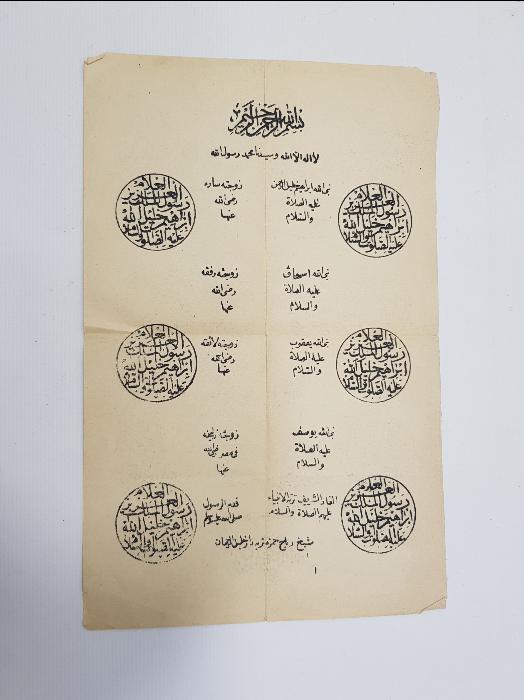 بسم الله الرحمن الرحيم
لا اله الا الله وسيدنا محمد رسول الله
نبي الله ابراهيم خليل الرحمن
عليه الصلاة
والسلام
زوجته ساره
رضي الله
عنها
نبي الله اسحاق
عليه الصلاة
والسلام
زوجته رفقه
رضي الله
عنها
نبي الله يعقوب
عليه الصلاة
والسلام
زوجته لائقه
رضي الله
عنها
نبي الله يوسف
عليه الصلاة
والسلام
زوجته زليخه
في مصر رضي الله
عنها
الغار الشريف تربة الانبياء
عليهم الصلاة والسلام
قدم الرسول
صلى الله عليه وسلم
العلام
رسول الملك العزيز
ابراهيم خليل الله
عليه الصلوة والسلام
العلام
رسول الملك العزيز
ابراهيم خليل الله
عليه الصلوة والسلام
العلام
رسول الملك العزيز
ابراهيم خليل الله
عليه الصلوة والسلام
العلام
رسول الملك العزيز
ابراهيم خليل الله
عليه الصلوة والسلام
العلام
رسول الملك العزيز
ابراهيم خليل الله
عليه الصلوة والسلام
العلام
رسول الملك العزيز
ابراهيم خليل الله
عليه الصلوة والسلام
خليل الرحمان